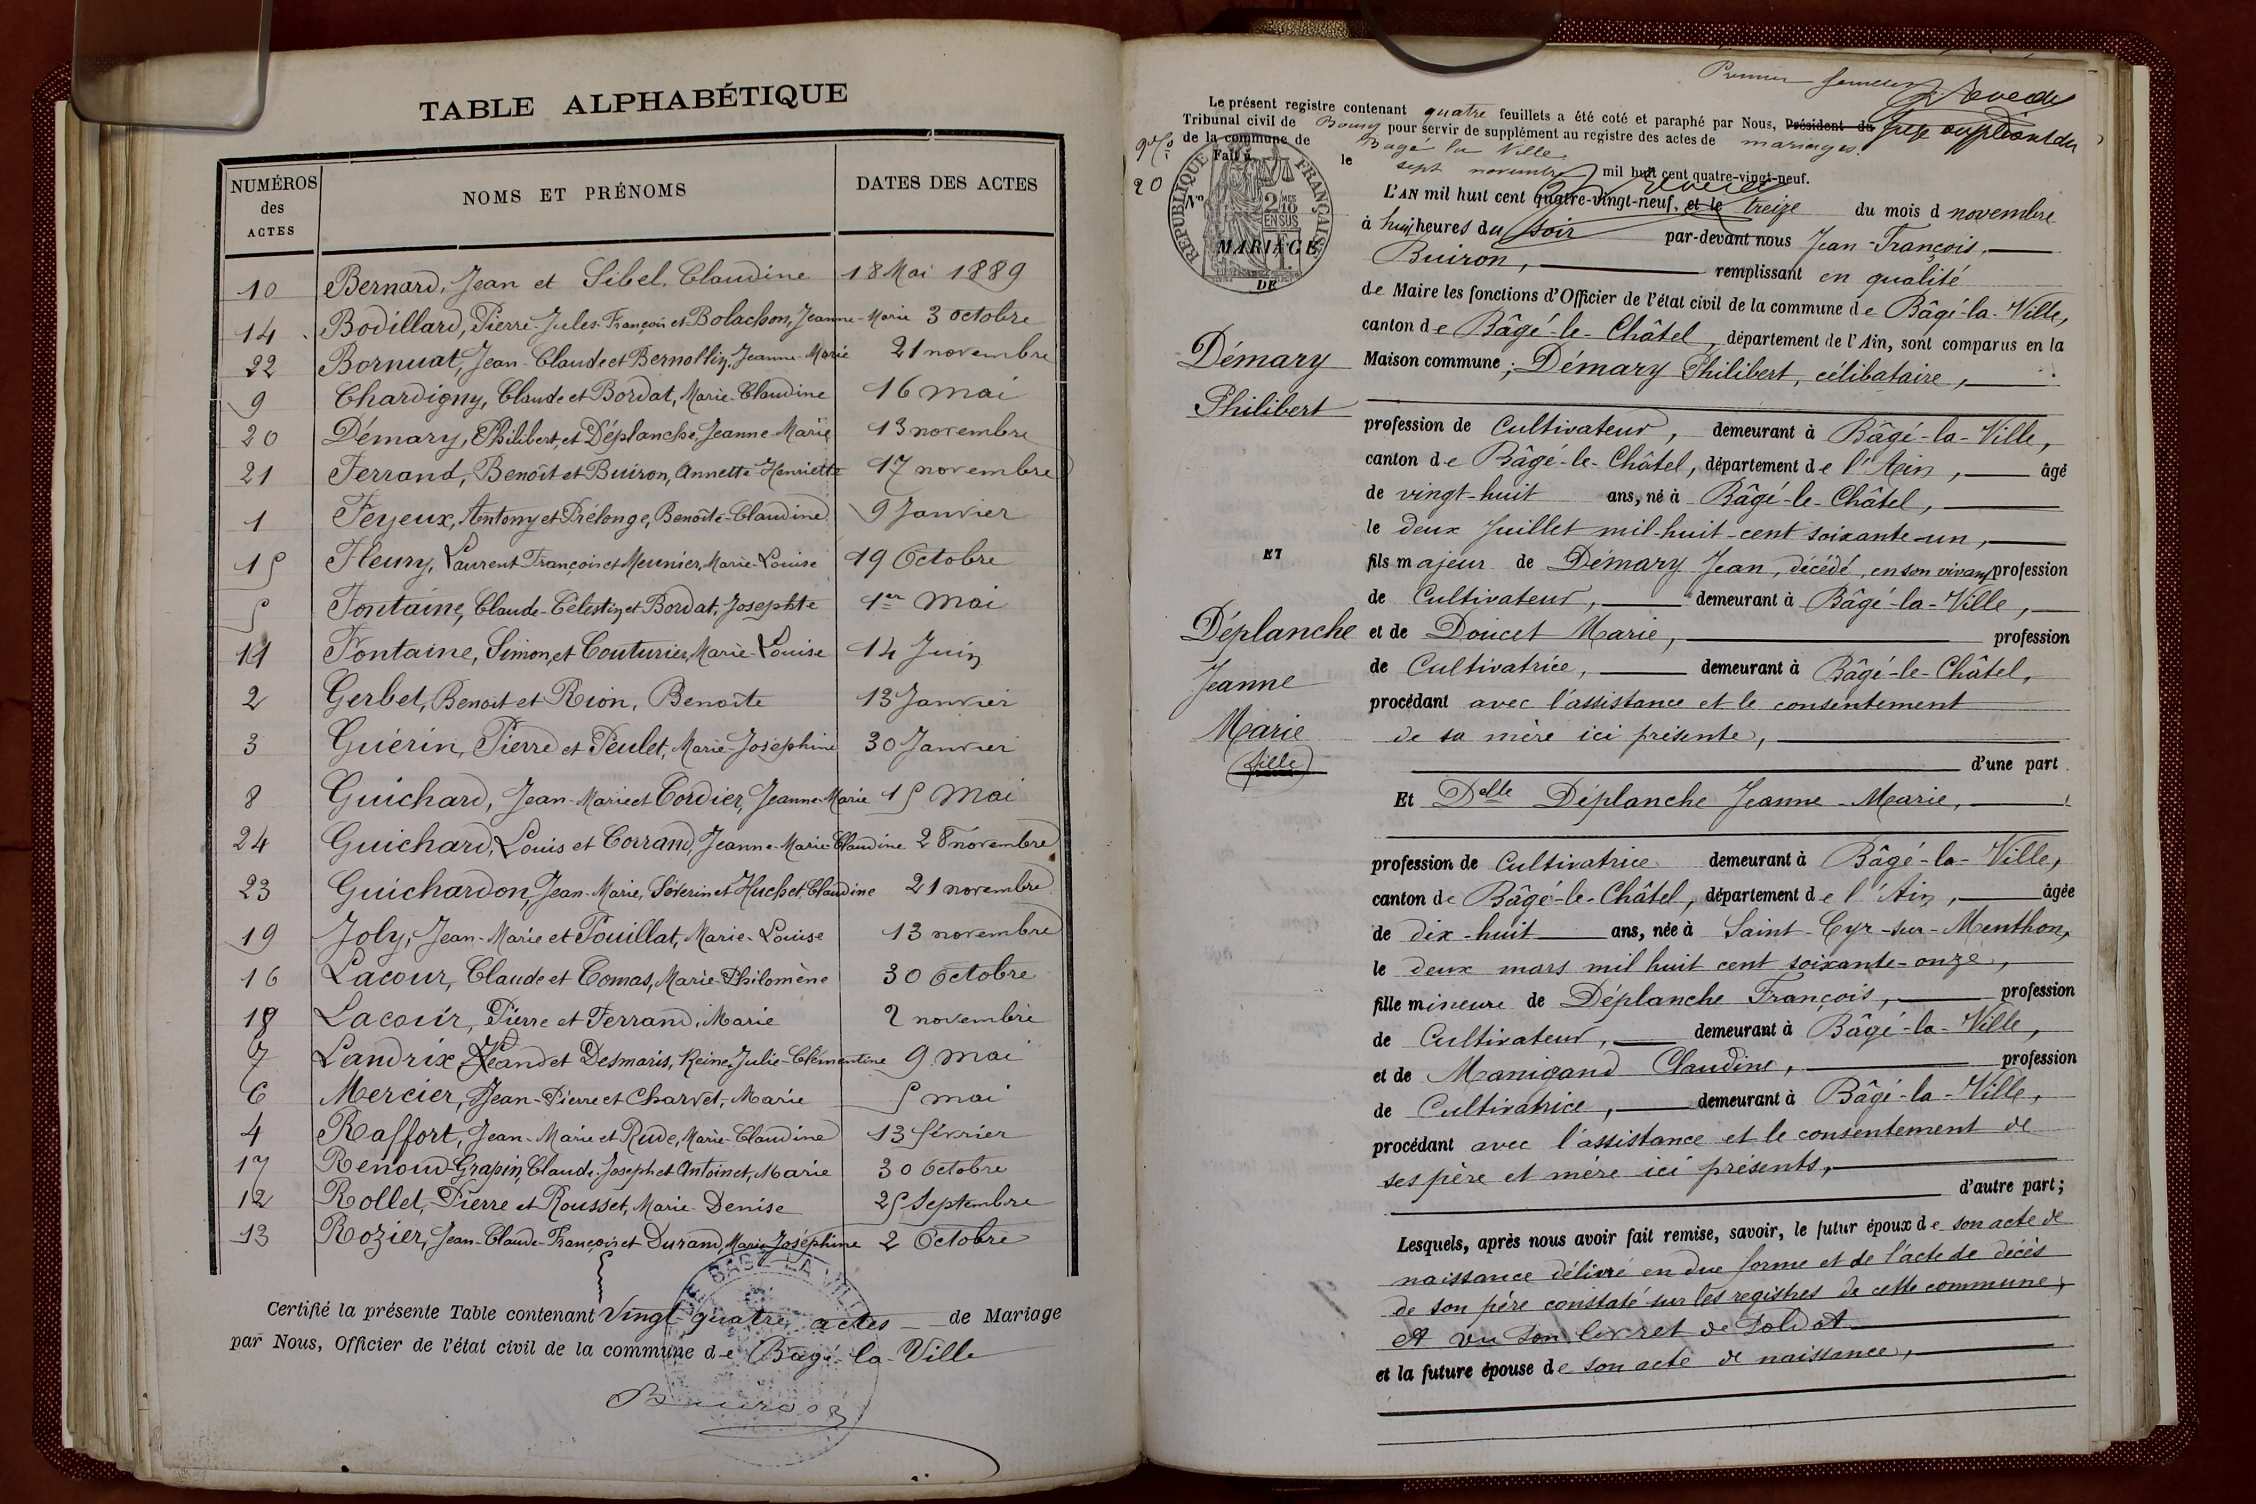 TABLE ALPHABÉTIQUE
NUMÉROS des ACTES NOMS ET PRÉNOMS DATES DES ACTES
10 Bernard, Jean et Sibel, Claudine 18 Mai 1889
14 Bodillard, Pierre-Jules-François et Bolachon, Jeanne-Marie 3 octobre
22 Bornuat, Jean-Claude et Bernollin, Jeanne-Marie 21 novembre
9 Chardigny, Claude et Bordat, Marie-Claudine 16 mai
20 Démary, Philibert, et Déplanche, Jeanne-Marie 13 novembre
21 Ferrand, Benoît et Buiron, Annette Henriette 17 novembre
1 Feyeux, Antony et Prélonge, Benoîte-Claudine 9 Janvier
15 Fleury, Laurent-François et Meunier, Marie-Louise 19 Octobre
5 Fontaine, Claude-Célestin et Bordat, Josephte 1er Mai
11 Fontaine, Simon, et Couturier, Marie-Louise 14 Juin
2 Gerbet, Benoit et Rion, Benoîte 13 Janvier
3 Guérin, Pierre et Peulet, Marie-Joséphine 30 Janvier
8 Guichard, Jean-Marie et Cordier, Jeanne-Marie 15 Mai
24 Guichard, Louis et Corrand, Jeanne-Marie-Claudine 28 novembre
23 Guichardon, Jean-Marie, Séverin et Huchet, Claudine 21 novembre
19 Joly, Jean-Marie et Pouillat, Marie-Louise 13 novembre
16 Lacour, Claude et Comas, Marie-Philomène 30 Octobre
18 Lacour, Pierre et Ferrand, Marie 2 novembre
7 Landrix, Jean et Desmaris, Reine Julie-Clémentine 9 mai
6 Mercier, Jean-Pierre et Charvet, Marie 5 mai
4 Raffort, Jean-Marie et Rude, Marie-Claudine 13 février
17 Renoud-Grapin, Claude-Joseph et Antoinet, Marie 30 Octobre
12 Rollet, Pierre et Rousset, Marie-Denise 25 Septembre
13 Rozier, Jean-Claude-François et Durand, Marie Joséphine 2 Octobre
Certifié la présente Table contenant Vingt-quatre actes de Mariage
par Nous, Officier de l'état civil de la commune de Bâgé-la-Ville
Buiron
Premier
Le présent registre contenant quatre feuillets a été coté et paraphé par Nous, Président du Juge suppléant du
Tribunal civil de Bourg pour servir de supplément au registre des actes de mariages
de la commune de Bâgé la Ville
Fait à le sept novembre mil huit cent quatre-vingt-neuf.
20
RÉPUBLIQUE FRANÇAISE
2/10 EN SUS
No
MARIAGE
DE
Démary
Philibert
ET
Déplanche
Jeanne
Marie
(fille)
L'AN mil huit cent quatre-vingt-neuf, et le treize du mois d novembre
à huit heures du soir par-devant nous Jean-François,
Buiron, remplissant en qualité
de Maire les fonctions d'Officier de l'état civil de la commune de Bâgé-la-Ville,
canton de Bâgé-le-Châtel, département de l'Ain, sont comparus en la
Maison commune; Démary Philibert, célibataire,
profession de Cultivateur, demeurant à Bâgé-la-Ville,
canton de Bâgé-le-Châtel, département de l'Ain, âgé
de vingt-huit ans, né à Bâgé-le-Châtel,
le deux Juillet mil-huit-cent soixante-un,
fils majeur de Démary Jean, décédé, en son vivant profession
de Cultivateur, demeurant à Bâgé-la-Ville,
et de Doucet Marie, profession
de Cultivatrice, demeurant à Bâgé-le-Châtel,
procédant avec l'assistance et le consentement
de sa mère ici présente,
d'une part
Et Delle Déplanche Jeanne-Marie,
profession de Cultivatrice demeurant à Bâgé-la-Ville,
canton de Bâgé-le-Châtel, département de l'Ain, âgée
de dix-huit ans, née à Saint-Cyr-sur-Menthon,
le deux mars mil huit cent soixante-onze,
fille mineure de Déplanche François, profession
de Cultivateur, demeurant à Bâgé-la-Ville,
et de Manigand Claudine, profession
de Cultivatrice, demeurant à Bâgé-la-Ville,
procédant avec l'assistance et le consentement de
ses père et mère ici présents,
d'autre part;
Lesquels, après nous avoir fait remise, savoir, le futur époux de son acte de
naissance délivré en due forme et de l'acte de décès
de son père constaté sur les registres de cette commune,
et vu son livret de soldat
et la future épouse de son acte de naissance,